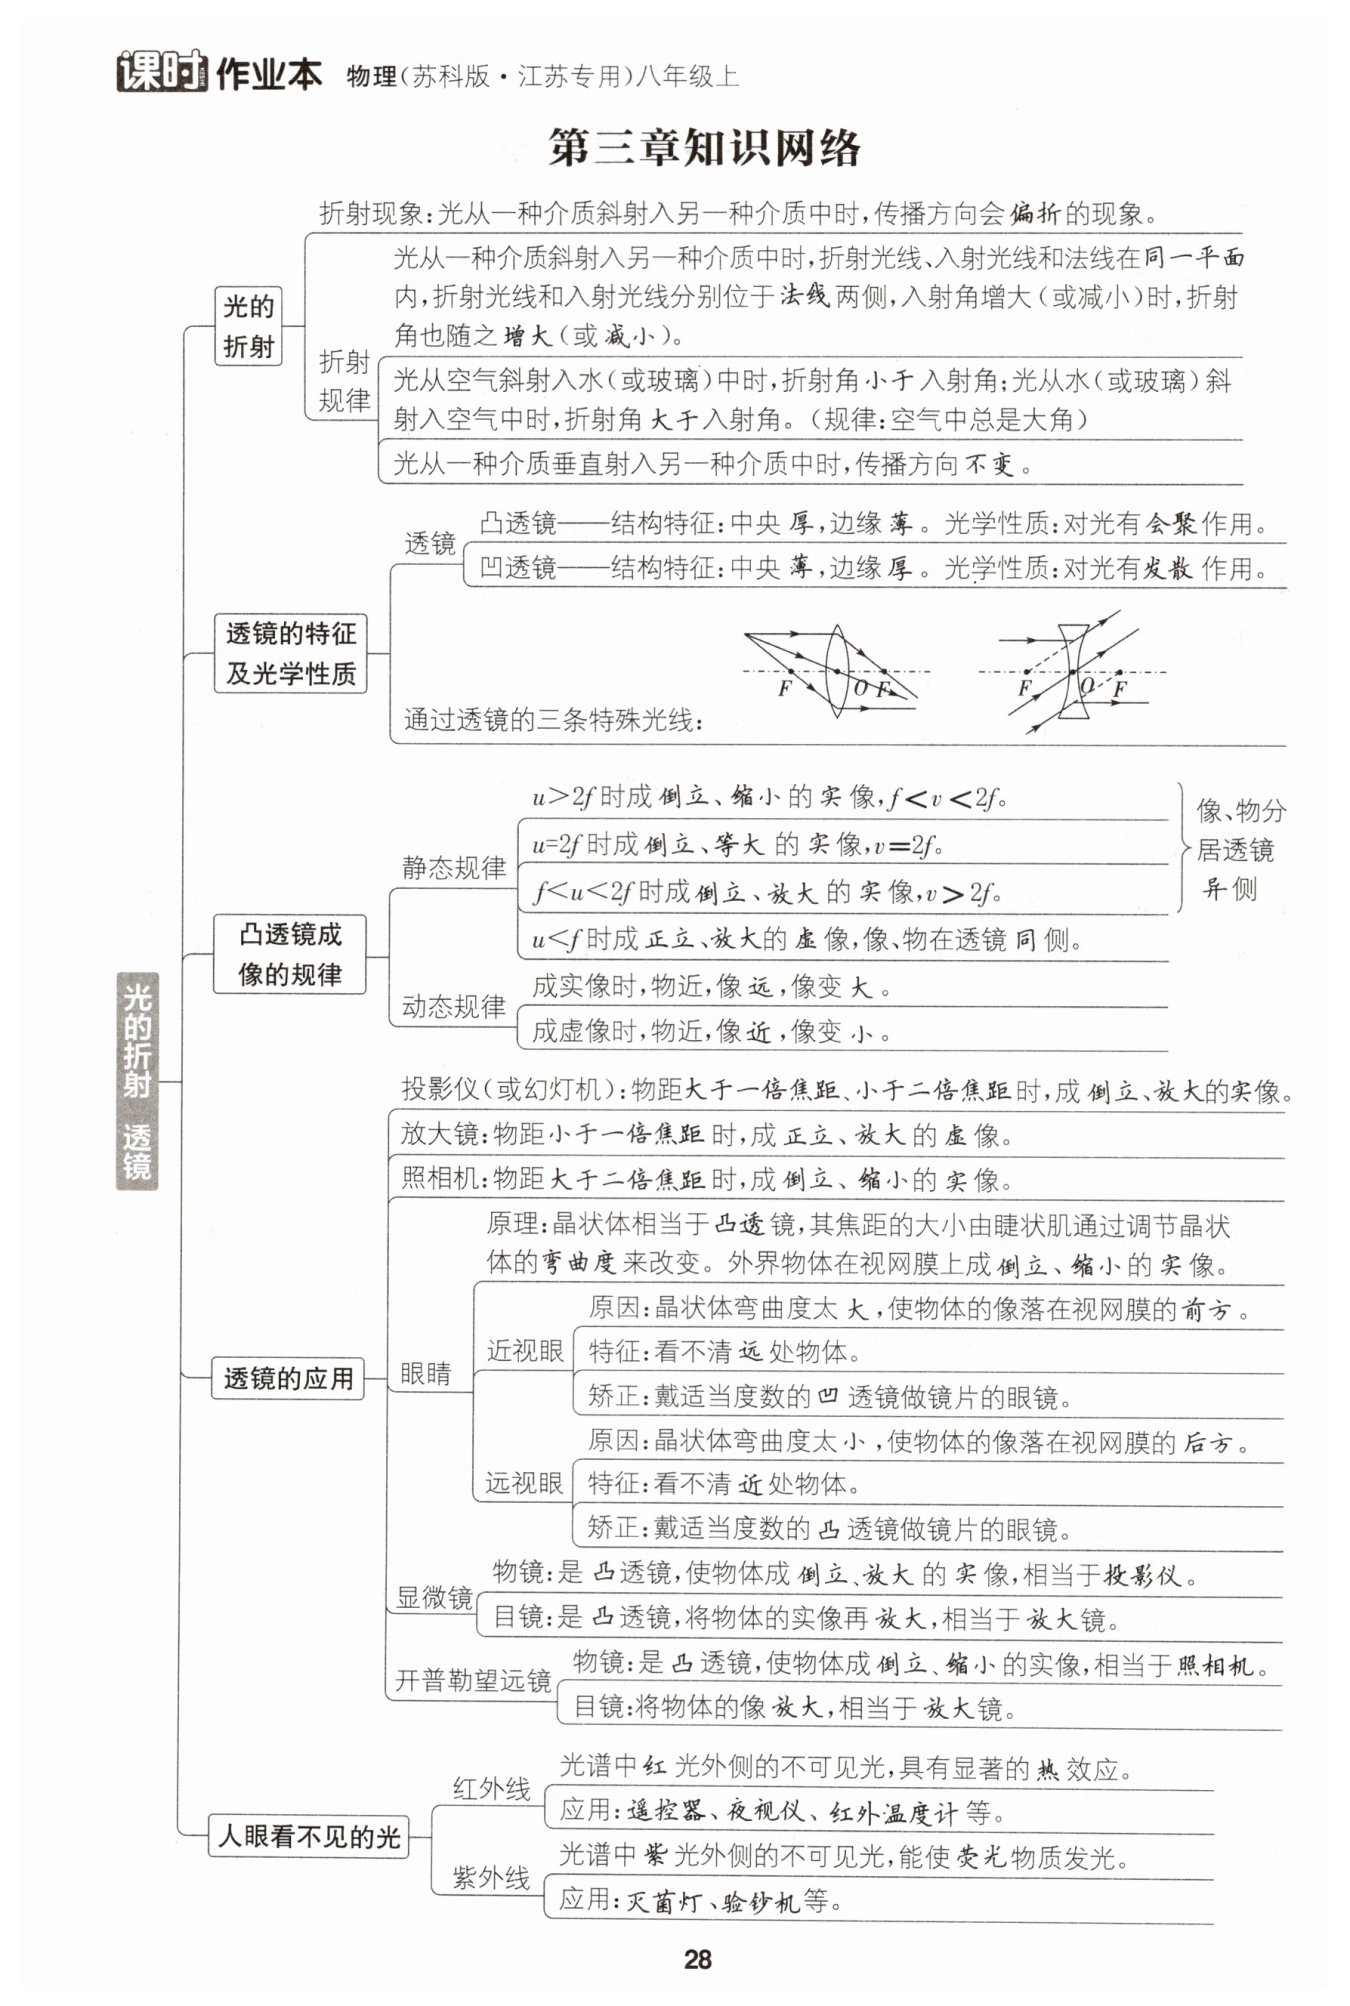 课时作业本 物理(苏科版·江苏专用)八年级上
第三章知识网络
光的折射 透镜
光的
折射
折射现象:光从一种介质斜射入另一种介质中时,传播方向会偏折的现象。
折射
规律
光从一种介质斜射入另一种介质中时,折射光线、入射光线和法线在同一平面
内,折射光线和入射光线分别位于法线两侧,入射角增大(或减小)时,折射
角也随之增大(或减小)。
光从空气斜射入水(或玻璃)中时,折射角小于入射角;光从水(或玻璃)斜
射入空气中时,折射角大于入射角。(规律:空气中总是大角)
光从一种介质垂直射入另一种介质中时,传播方向不变。
透镜的特征
及光学性质
透镜
凸透镜——结构特征:中央厚,边缘薄。光学性质:对光有会聚作用。
凹透镜——结构特征:中央薄,边缘厚。光学性质:对光有发散作用。
通过透镜的三条特殊光线:
F O F
F O F
凸透镜成
像的规律
静态规律
u>2f时成倒立、缩小的实像,f<v<2f。
u=2f时成倒立、等大的实像,v=2f。
f<u<2f时成倒立、放大的实像,v>2f。
像、物分
居透镜
异侧
u<f时成正立、放大的虚像,像、物在透镜同侧。
动态规律
成实像时,物近,像远,像变大。
成虚像时,物近,像近,像变小。
透镜的应用
投影仪(或幻灯机):物距大于一倍焦距、小于二倍焦距时,成倒立、放大的实像。
放大镜:物距小于一倍焦距时,成正立、放大的虚像。
照相机:物距大于二倍焦距时,成倒立、缩小的实像。
眼睛
原理:晶状体相当于凸透镜,其焦距的大小由睫状肌通过调节晶状
体的弯曲度来改变。外界物体在视网膜上成倒立、缩小的实像。
近视眼
原因:晶状体弯曲度太大,使物体的像落在视网膜的前方。
特征:看不清远处物体。
矫正:戴适当度数的凹透镜做镜片的眼镜。
远视眼
原因:晶状体弯曲度太小,使物体的像落在视网膜的后方。
特征:看不清近处物体。
矫正:戴适当度数的凸透镜做镜片的眼镜。
显微镜
物镜:是凸透镜,使物体成倒立、放大的实像,相当于投影仪。
目镜:是凸透镜,将物体的实像再放大,相当于放大镜。
开普勒望远镜
物镜:是凸透镜,使物体成倒立、缩小的实像,相当于照相机。
目镜:将物体的像放大,相当于放大镜。
人眼看不见的光
红外线
光谱中红光外侧的不可见光,具有显著的热效应。
应用:遥控器、夜视仪、红外温度计等。
紫外线
光谱中紫光外侧的不可见光,能使荧光物质发光。
应用:灭菌灯、验钞机等。
28